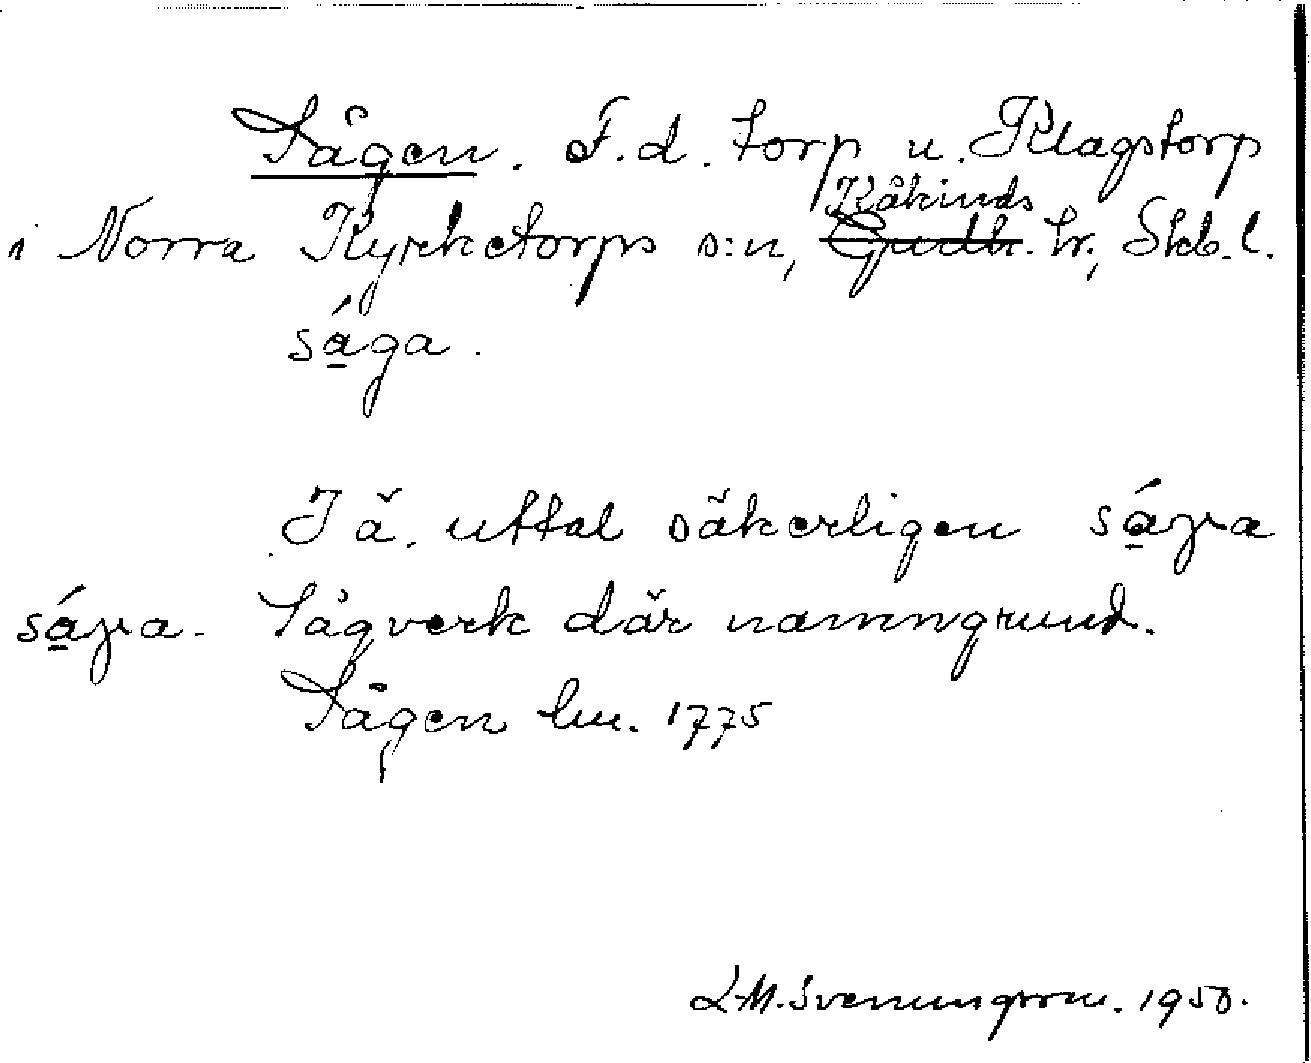 Sågen. F.d. torp u. Klagstorp
Kåkinds
i Norra Kyrketorps s:n, Gudh. hr, Skb. l.
såga.
I ä. uttal säkerligen
Sågverk där namngrund.
Sågen hu. 1775
L.M. Svenungsson. 1950.